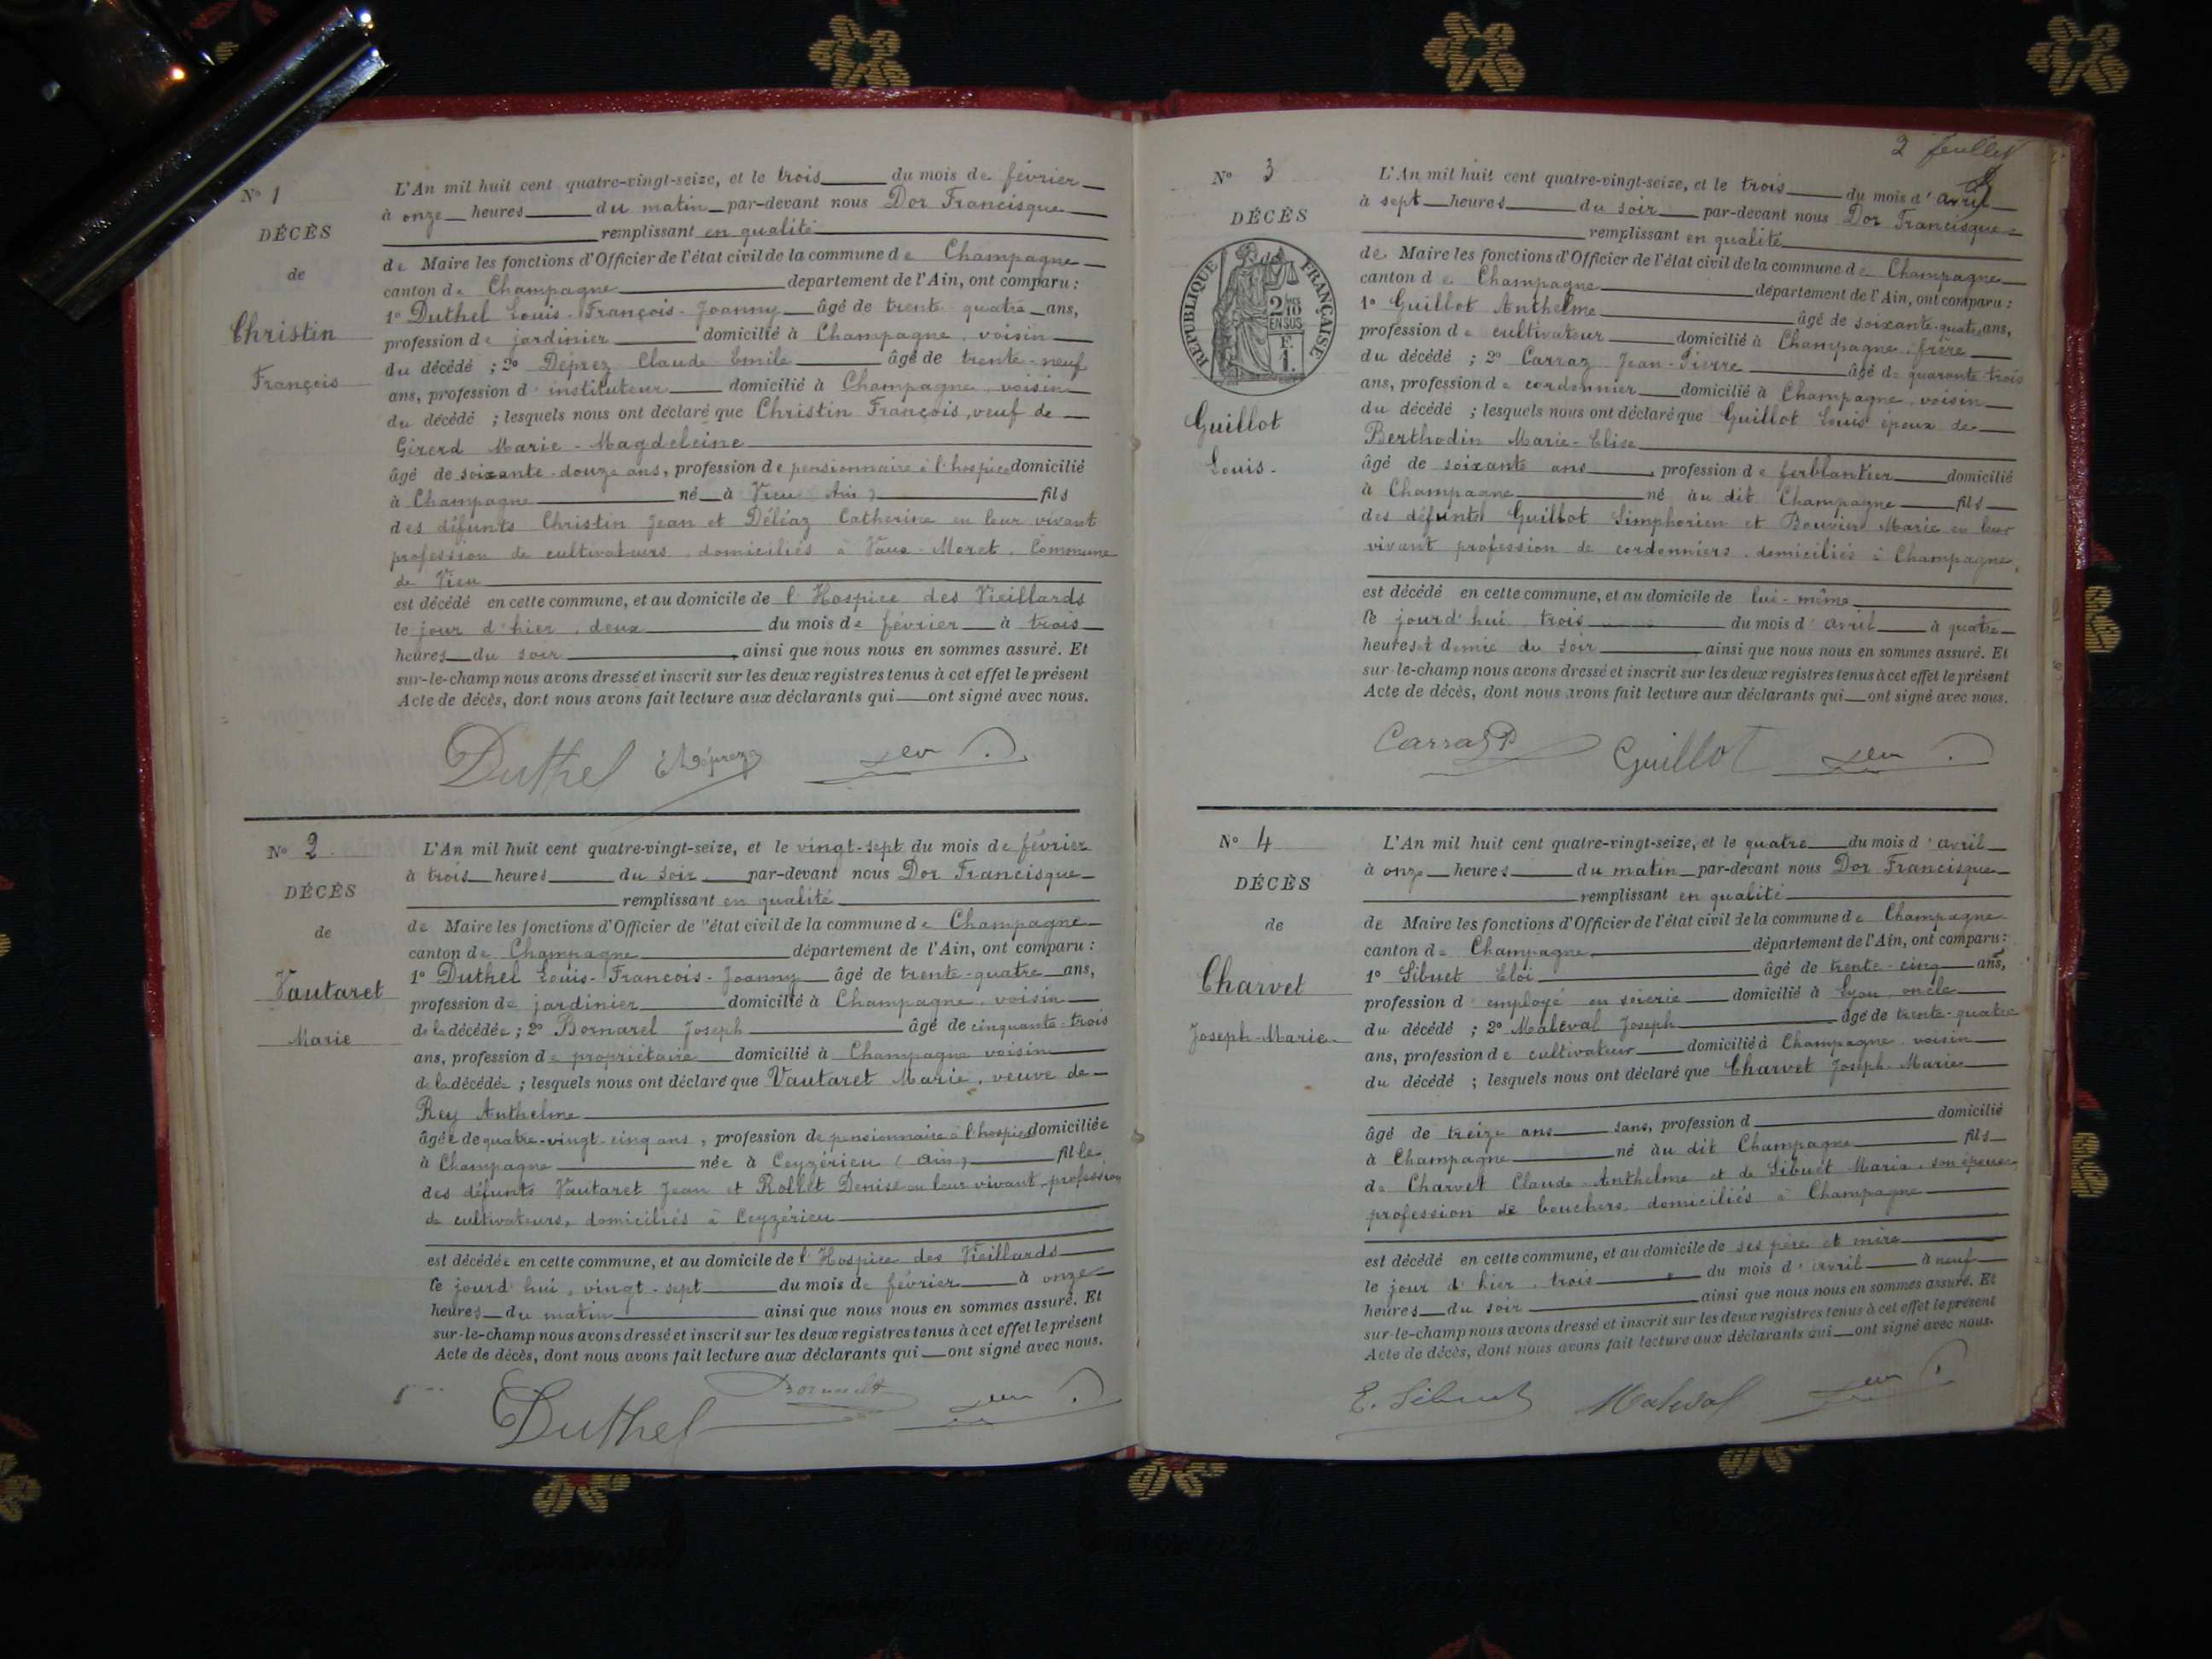 N° 1
DÉCÈS
de
Christin
François
L'An mil huit cent quatre-vingt-seize, et le trois du mois de février
à onze heures du matin par-devant nous Dor Francisque
remplissant en qualité
de Maire les fonctions d'Officier de l'état civil de la commune de Champagne
canton de Champagne departement de l'Ain, ont comparu :
1° Duthel Louis-François-Joanny âgé de trente quatre ans,
profession de jardinier domicilié à Champagne, voisin
du décédé ; 2° Déprez Claude Emile âgé de trente-neuf
ans, profession d'instituteur domicilié à Champagne, voisin
du décédé ; lesquels nous ont déclaré que Christin François, veuf de
Girerd Marie-Magdeleine
âgé de soixante-douze ans, profession de pensionnaire à l'hospice domicilié
à Champagne né à Vieu (Ain) fils
des défunts Christin Jean et Déléaz Catherine en leur vivant
profession de cultivateurs, domiciliés à Vaux-Moret, Commune
de Vieu
est décédé en cette commune, et au domicile de l'Hospice des Vieillards
le jour d'hier, deux du mois de février à trois
heures du soir ainsi que nous nous en sommes assuré. Et
sur-le-champ nous avons dressé et inscrit sur les deux registres tenus à cet effet le présent
Acte de décès, dont nous avons fait lecture aux déclarants qui ont signé avec nous.
Duthel E Déprez
N° 2
DÉCÈS
de
Vautaret
Marie
L'An mil huit cent quatre-vingt-seize, et le vingt-sept du mois de février
à trois heures du soir par-devant nous Dor Francisque
remplissant en qualité
de Maire les fonctions d'Officier de l'état civil de la commune de Champagne
canton de Champagne département de l'Ain, ont comparu :
1° Duthel Louis-Francois-Joanny âgé de trente-quatre ans,
profession de jardinier domicilié à Champagne, voisin
de la décédée ; 2° Bornarel Joseph âgé de cinquante-trois
ans, profession de propriétaire domicilié à Champagne voisin
de la décédée ; lesquels nous ont déclaré que Vautaret Marie, veuve de
Rey Anthelme
âgée de quatre-vingt-cinq ans, profession de pensionnaire à l'hospice domiciliée
à Champagne née à Ceyzérieu (Ain) fille
des défunts Vautaret Jean et Rollet Denise en leur vivant profession
de cultivateurs, domiciliés à Ceyzérieu
est décédée en cette commune, et au domicile de l'Hospice des Vieillards
le jourd'hui, vingt-sept du mois de février à onze
heures du matin ainsi que nous nous en sommes assuré. Et
sur-le-champ nous avons dressé et inscrit sur les deux registres tenus à cet effet le présent
Acte de décès, dont nous avons fait lecture aux déclarants qui ont signé avec nous.
Duthel
2 feuillet
N° 3
DÉCÈS
de
RÉPUBLIQUE FRANÇAISE
2/10 EN SUS
F. 1.
Guillot
Louis
L'An mil huit cent quatre-vingt-seize, et le trois du mois d'avril
à sept heures du soir par-devant nous Dor Francisque
remplissant en qualité
de Maire les fonctions d'Officier de l'état civil de la commune de Champagne
canton de Champagne département de l'Ain, ont comparu :
1° Guillot Anthelme âgé de soixante-quatre ans,
profession de cultivateur domicilié à Champagne, frère
du décédé ; 2° Carraz Jean-Pierre âgé de quarante trois
ans, profession de cordonnier domicilié à Champagne, voisin
du décédé ; lesquels nous ont déclaré que Guillot Louis époux de
Berthodin Marie-Elise
âgé de soixante ans, profession de ferblantier domicilié
à Champagne né au dit Champagne fils
des défunts Guillot Simphorien et Bouvier Marie en leur
vivant profession de cordonniers, domiciliés à Champagne,
est décédé en cette commune, et au domicile de lui-même
le jourd'hui trois du mois d'avril à quatre
heures et demie du soir ainsi que nous nous en sommes assuré. Et
sur-le-champ nous avons dressé et inscrit sur les deux registres tenus à cet effet le présent
Acte de décès, dont nous avons fait lecture aux déclarants qui ont signé avec nous.
Guillot
N° 4
DÉCÈS
de
Charvet
Joseph-Marie
L'An mil huit cent quatre-vingt-seize, et le quatre du mois d'avril
à onze heures du matin par-devant nous Dor Francisque
remplissant en qualité
de Maire les fonctions d'Officier de l'état civil de la commune de Champagne
canton de Champagne département de l'Ain, ont comparu :
1° Sibuet Eloi âgé de trente-cinq ans,
profession d'employé en soierie domicilié à Lyon, oncle
du décédé ; 2° Maleval Joseph âgé de trente-quatre
ans, profession de cultivateur domicilié à Champagne, voisin
du décédé ; lesquels nous ont déclaré que Charvet Joseph-Marie
âgé de treize ans sans, profession d domicilié
à Champagne né au dit Champagne fils
de Charvet Claude-Anthelme et de Sibuet Maria, son épouse,
profession de bouchers, domiciliés à Champagne
est décédé en cette commune, et au domicile de ses père et mère
le jour d'hier, trois du mois d'avril à neuf
heures du soir ainsi que nous nous en sommes assuré. Et
sur-le-champ nous avons dressé et inscrit sur les deux registres tenus à cet effet le présent
Acte de décès, dont nous avons fait lecture aux déclarants qui ont signé avec nous.
E. Sibuet Maleval